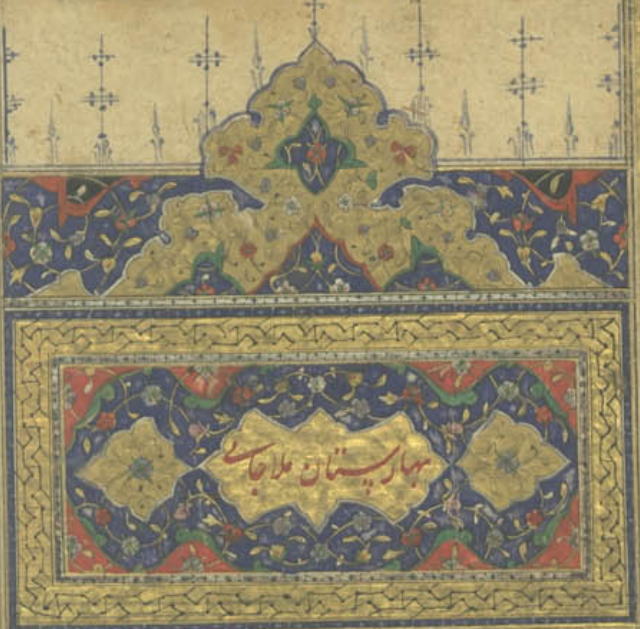 بهارستان ملا جامی